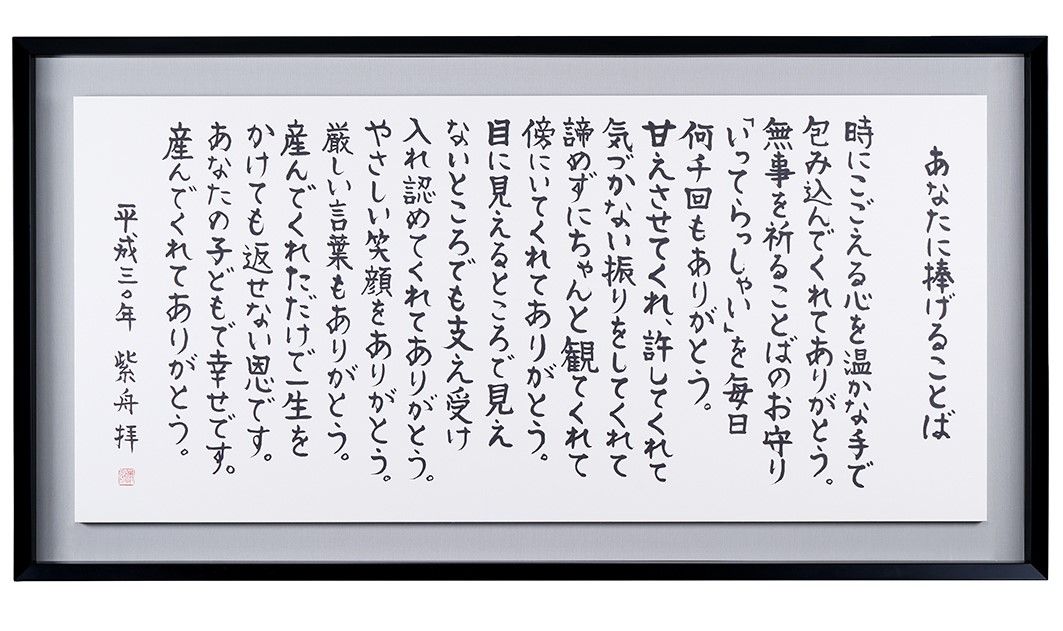 あなたに捧げることば
時にこごえる心を温かな手で
包み込んでくれてありがとう。
無事を祈ることばのお守り
「いってらっしゃい」を毎日
何千回もありがとう。
甘えさせてくれ、許してくれて
気づかない振りをしてくれて
諦めずにちゃんと観てくれて
傍にいてくれてありがとう。
目に見えるところで見え
ないところでも支え受け
入れ認めてくれてありがとう。
やさしい笑顔をありがとう。
厳しい言葉もありがとう。
産んでくれただけで一生を
かけても返せない恩です。
あなたの子どもで幸せです。
産んでくれてありがとう。
平成三〇年 紫舟 拝